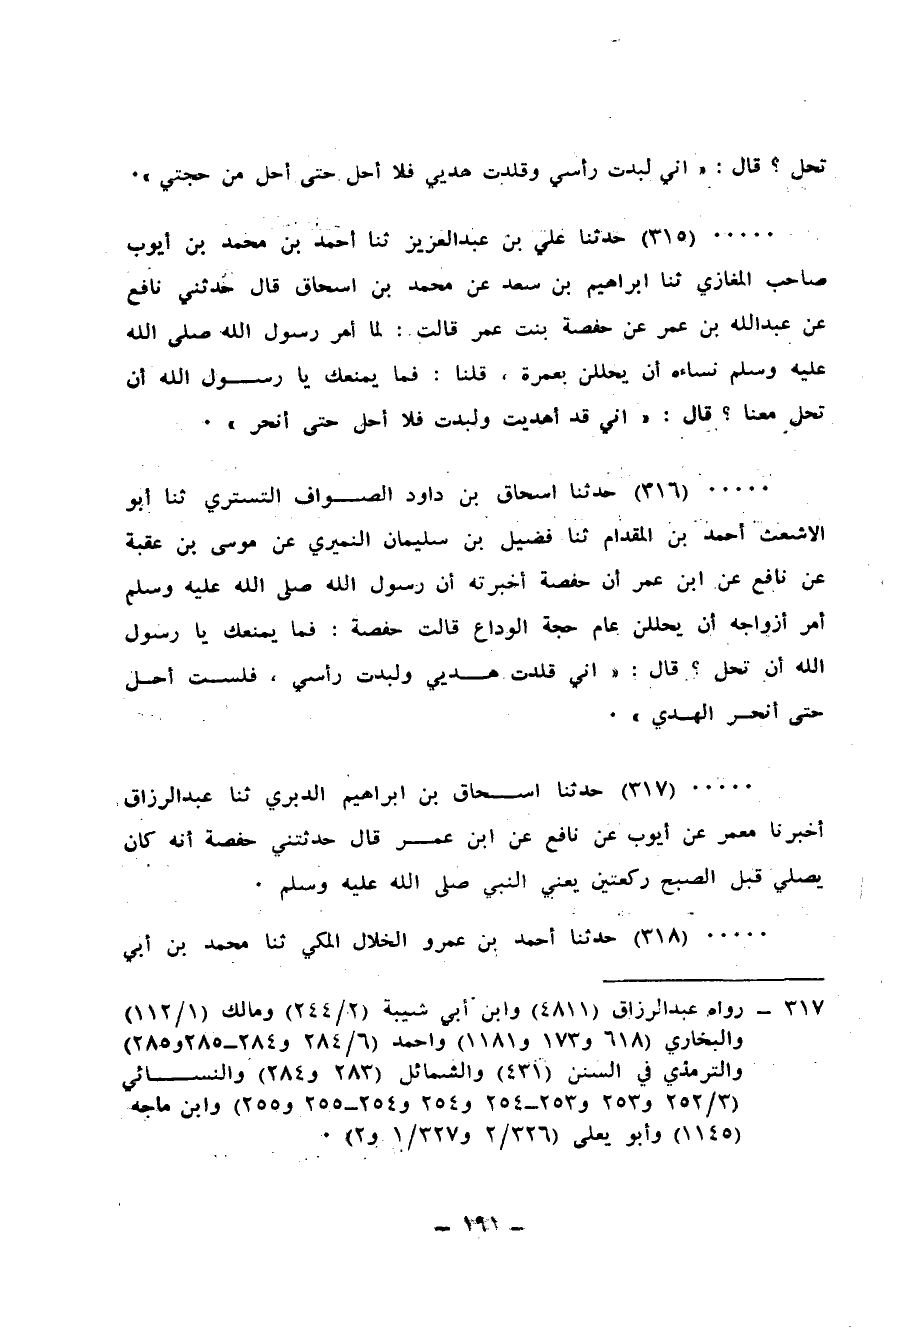 تحل ؟ قال : « اني لبدت رأسي وقلدت هديي فلا أحل حتى أحل من حجتي » ٠
٠٠٠٠٠ (٣١٥) حدثنا علي بن عبدالعزيز ثنا أحمد بن محمد بن أيوب
صاحب المغازي ثنا ابراهيم بن سعد عن محمد بن اسحاق قال حدثني نافع
عن عبدالله بن عمر عن حفصة بنت عمر قالت : لما أمر رسول الله صلى الله
عليه وسلم نساءه أن يحللن بعمرة ، قلنا : فما يمنعك يا رســـول الله أن
تحل معنا ؟ قال : « اني قد أهديت ولبدت فلا أحل حتى أنحر » ٠
٠٠٠٠٠ (٣١٦) حدثنا اسحاق بن داود الصـــواف التستري ثنا أبو
الاشعث أحمد بن المقدام ثنا فضيل بن سليمان النميري عن موسى بن عقبة
عن نافع عن ابن عمر أن حفصة أخبرته أن رسول الله صلى الله عليه وسلم
أمر أزواجه أن يحللن عام حجة الوداع قالت حفصة : فما يمنعك يا رسول
الله أن تحل ؟ قال : « اني قلدت هـــديي ولبدت رأسي ، فلســت أحــل
حتى أنحــر الهــدي » ٠
٠٠٠٠٠ (٣١٧) حدثنا اســـحاق بن ابراهيم الدبري ثنا عبدالرزاق
أخبرنا معمر عن أيوب عن نافع عن ابن عمـــر قال حدثتني حفصة أنه كان
يصلي قبل الصبح ركعتين يعني النبي صلى الله عليه وسلم ٠
٠٠٠٠٠ (٣١٨) حدثنا أحمد بن عمرو الخلال المكي ثنا محمد بن أبي
٣١٧ ــ رواه عبدالرزاق (٤٨١١) وابن أبي شيبة (٢/٢٤٤) ومالك (١/١١٢)
والبخاري (٦١٨ و١٧٣ و١١٨١) واحمد (٦/٢٨٤ و٢٨٤ــ٢٨٥و٢٨٥)
والترمذي في السنن (٤٣١) والشمائل (٢٨٣ و٢٨٤) والنســـائي
(٣/٢٥٢ و٢٥٣ و٢٥٣ــ٢٥٤ و٢٥٤ و٢٥٤ــ٢٥٥ و٢٥٥) وابن ماجه
(١١٤٥) وأبو يعلى (٢/٣٢٦ و١/٣٢٧ و٢) ٠
ــ ١٩١ ــ